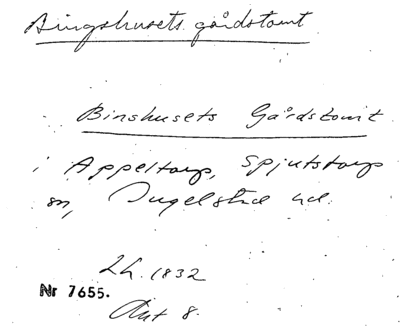 Bingshusets gårdstomt
Binshusets Gårdstomt
i Appeltorp, Spjutstorps
sn, Ingelstad hd.
Lh. 1832
Nr 7655.
Akt 8.